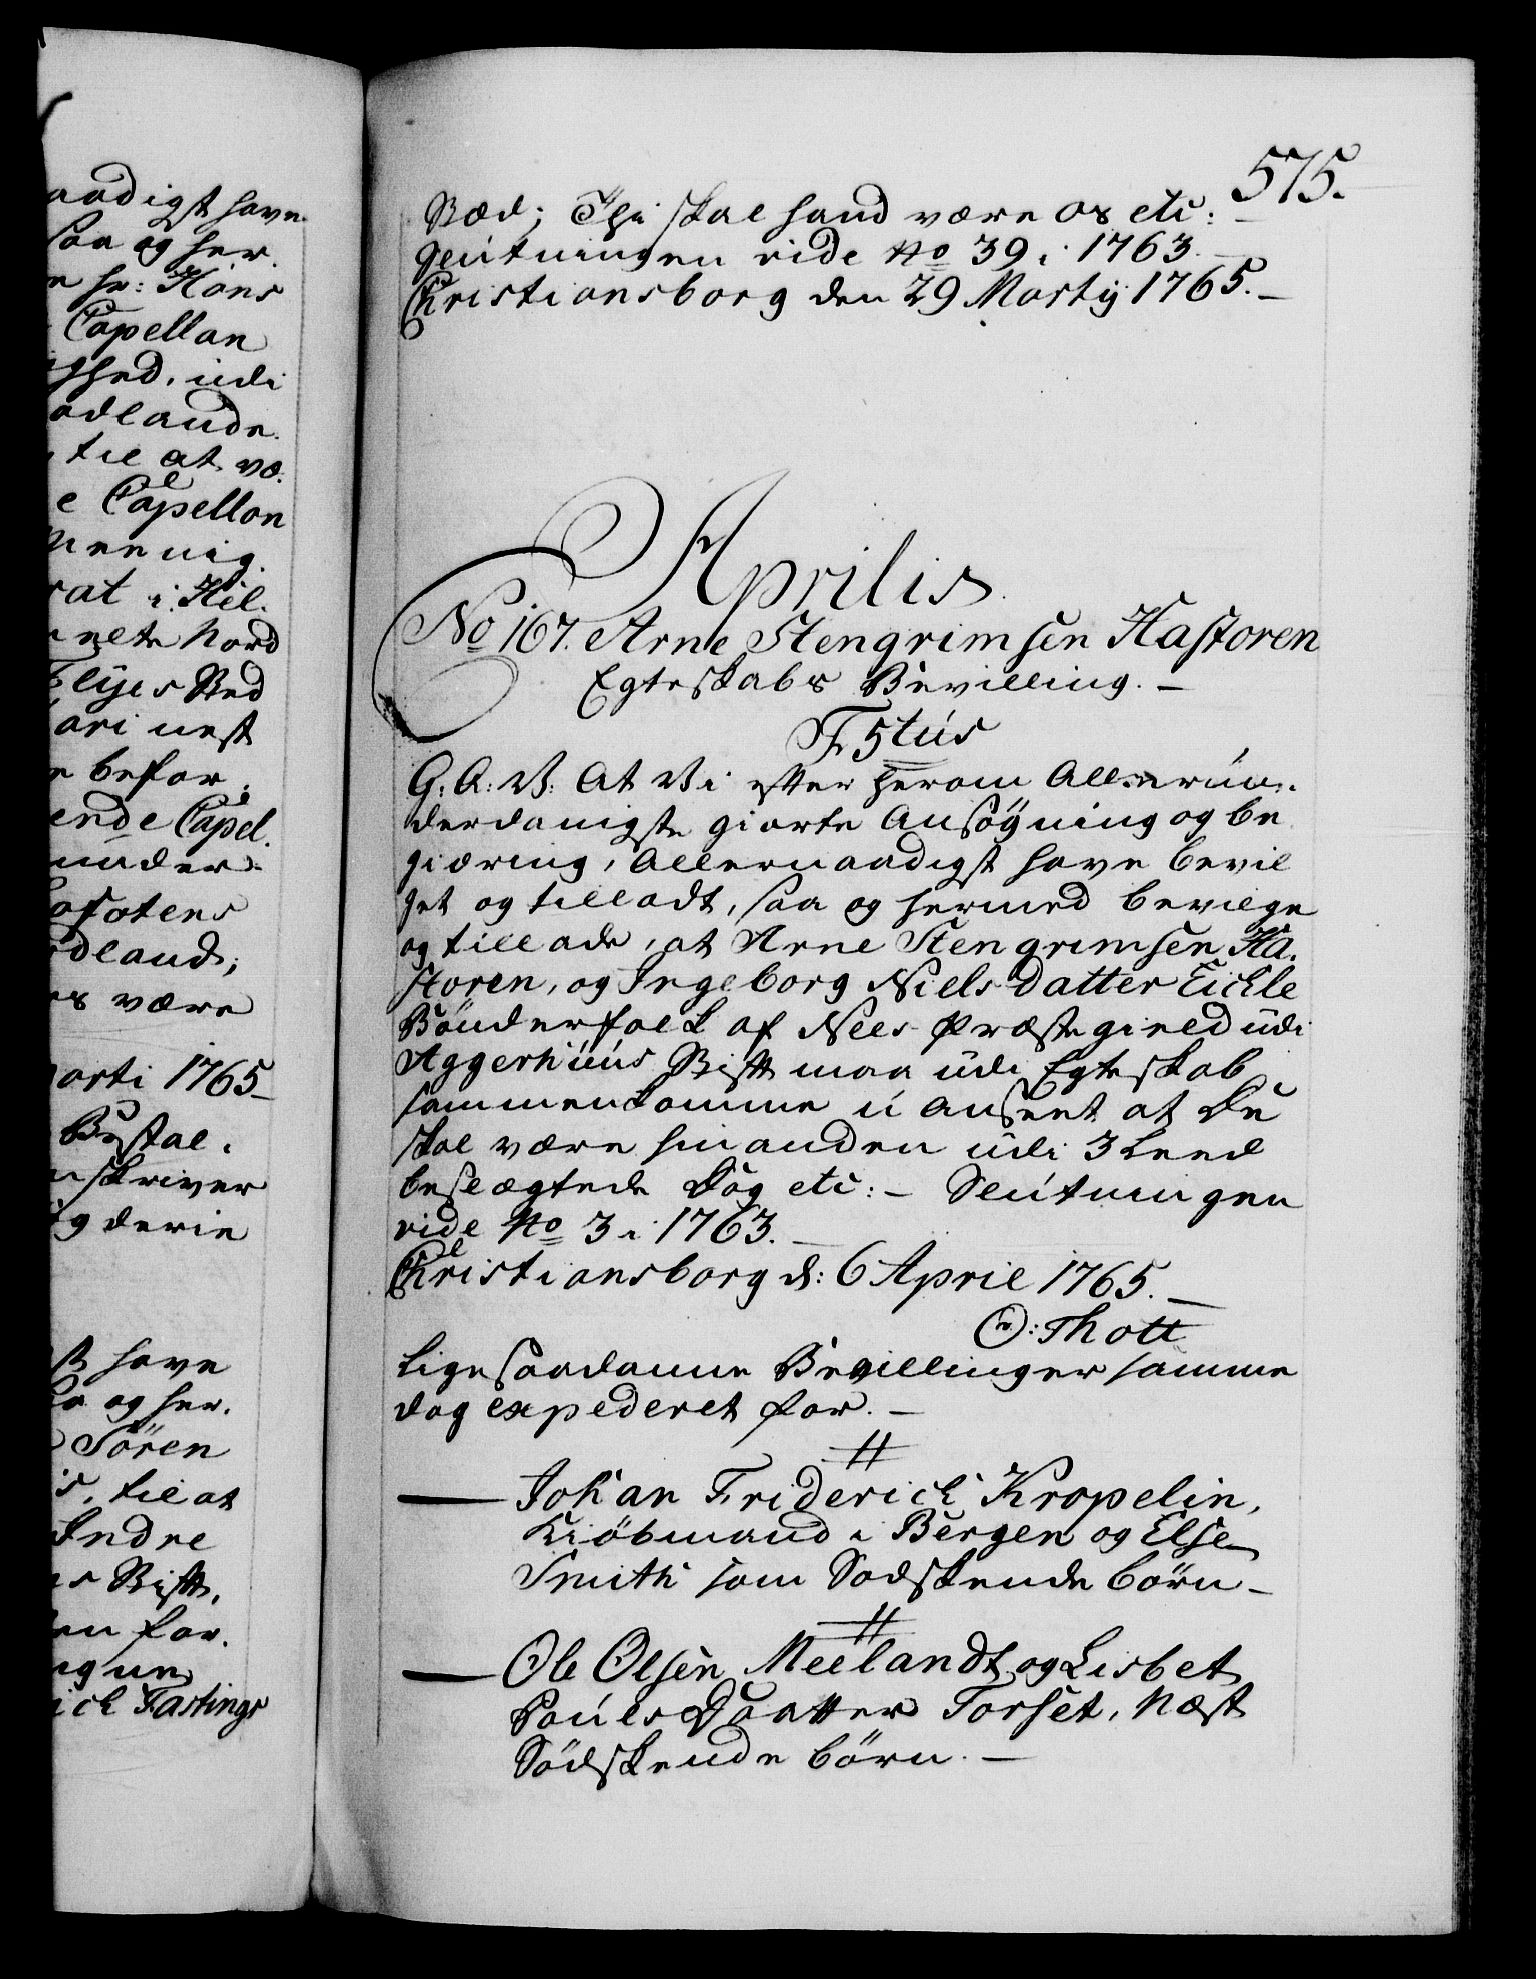 aadigst have
saa og her
hr: Hans
Capellan
hed, udi
adlande
til at væ:
e Capellan
rat i Hel.
Nord
Sted
næst
befor
ende Capel.
under
ofotens
dland;
os være
arti 1765
skriver
og derie
st have
og her.
Sören
til at
Indre
Stift,
for.
ich Fastings
575.
Sted; Thi skal hand være os etc:
Slutningen vide No 39 i 1763.
Christiansborg den 29 Martij 1765.—
Aprilis
No 167. Arne Stengrimsen Hastoren
Egteskabs Bevilling.—
F 5tus
G: A: V: At Vi efter herom Allerun-
derdanigste giorte Ansögning og be
giæring, Allernaadigst have bevil
get og tilladt, saa og hermed bevilge
og tillade, at Arne Stengrimsen Ha-
storen, og Ingeborg Nielsdatter Eickle
Bönderfolk af Nees Præstegield udi
Aggerhuus Stift maa udi Egteskab
sammenkomme u anseet at De
skal være hinanden udi 3 Leed
beslægtede Dog etc:— Slutningen
vide No 3 i 1763.—
Christiansborg d: 6 April 1765.—
O: Thott
Ligesaadanne Bevillinger samme
dag expederet for.—
//
— Johan Friderich Kropelin,
Kiöbmand i Bergen og Else
Smith som Sodskende börn—
//
— Ole Olsen Meelandt og Lisbet
Pouls Daatter Torset, Næst
Södskende börn.—